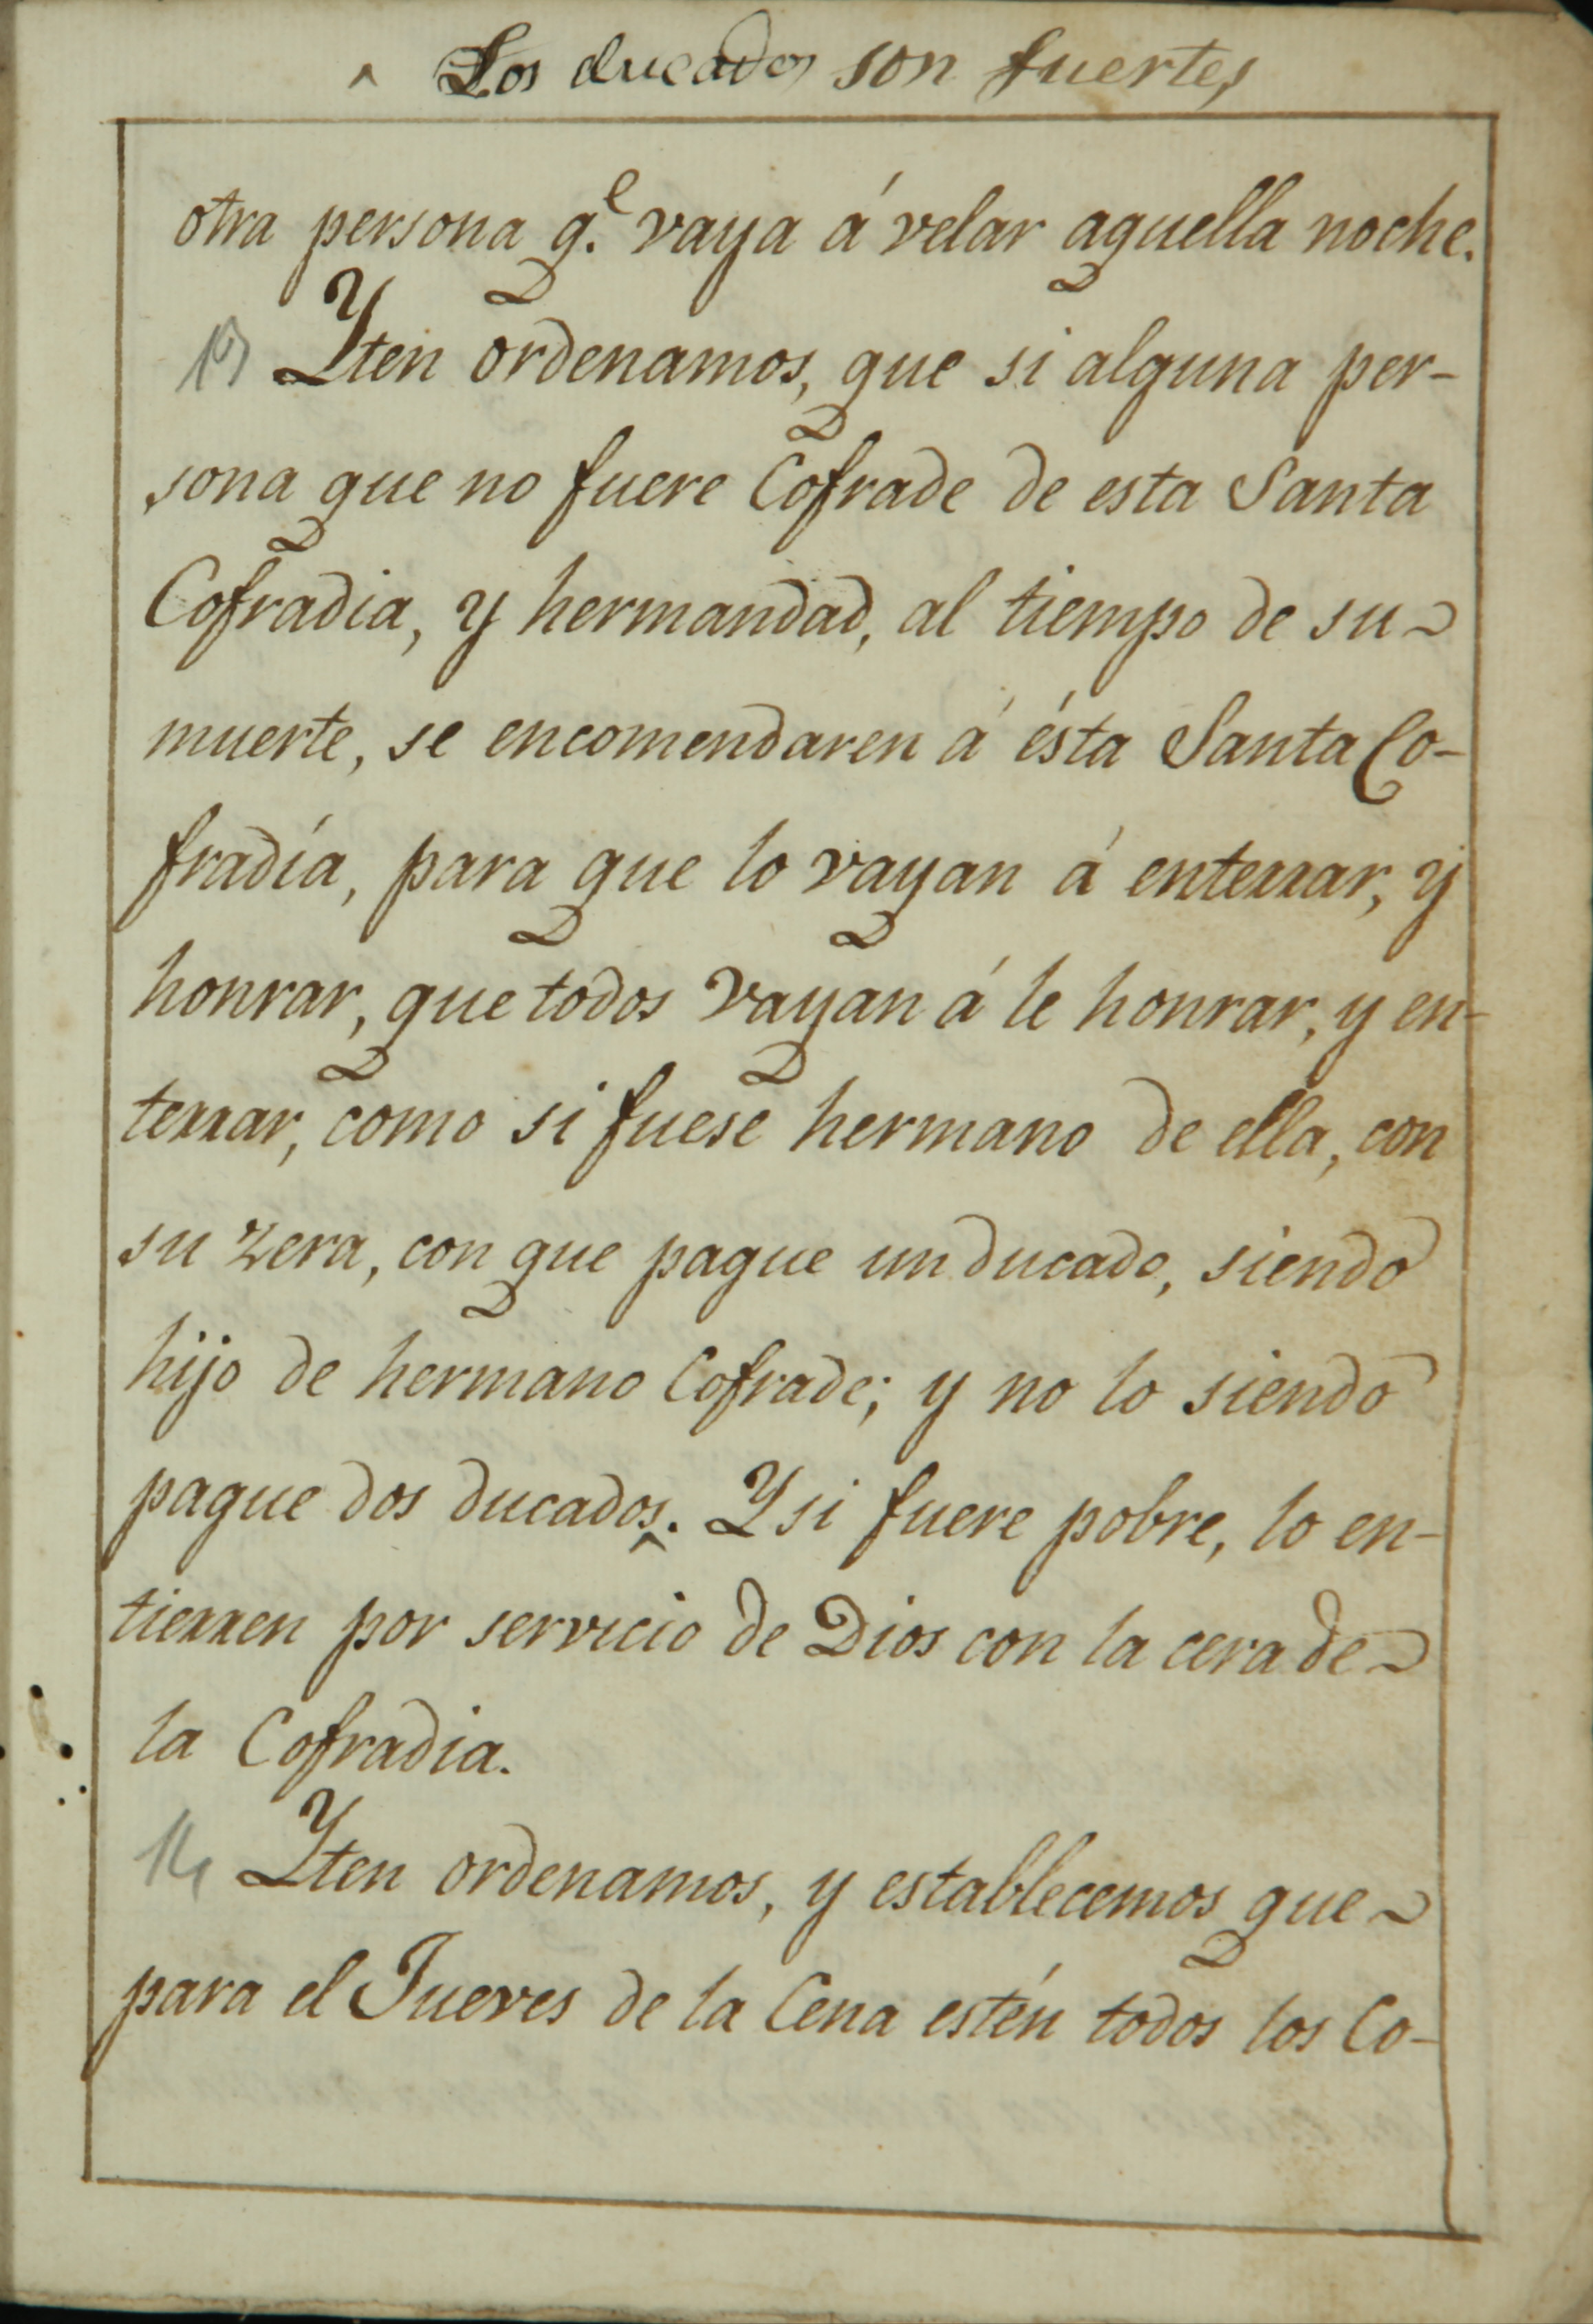 ^ Los ducados son fuertes
otra persona q.e vaya á velar aquella noche.
13 Yten ordenamos, que si alguna per-
sona que no fuere Cofrade de esta Santa
Cofradia, y hermandad, al tiempo de su~
muerte, se encomendaren á ésta Santa Co-
fradía, para que lo vayan á enterrar, y
honrar, que todos vayan á le honrar, y en-
terrar, como si fuese hermano de ella, con
su zera, con que pague un ducado, siendo
hijo de hermano Cofrade; y no lo siendo
pague dos ducados^. Y si fuere pobre, lo en-
tierren por servicio de Dios con la cera de~
la Cofradia.
14 Yten ordenamos, y establecemos que~
para el Jueves de la Cena estén todos los Co-